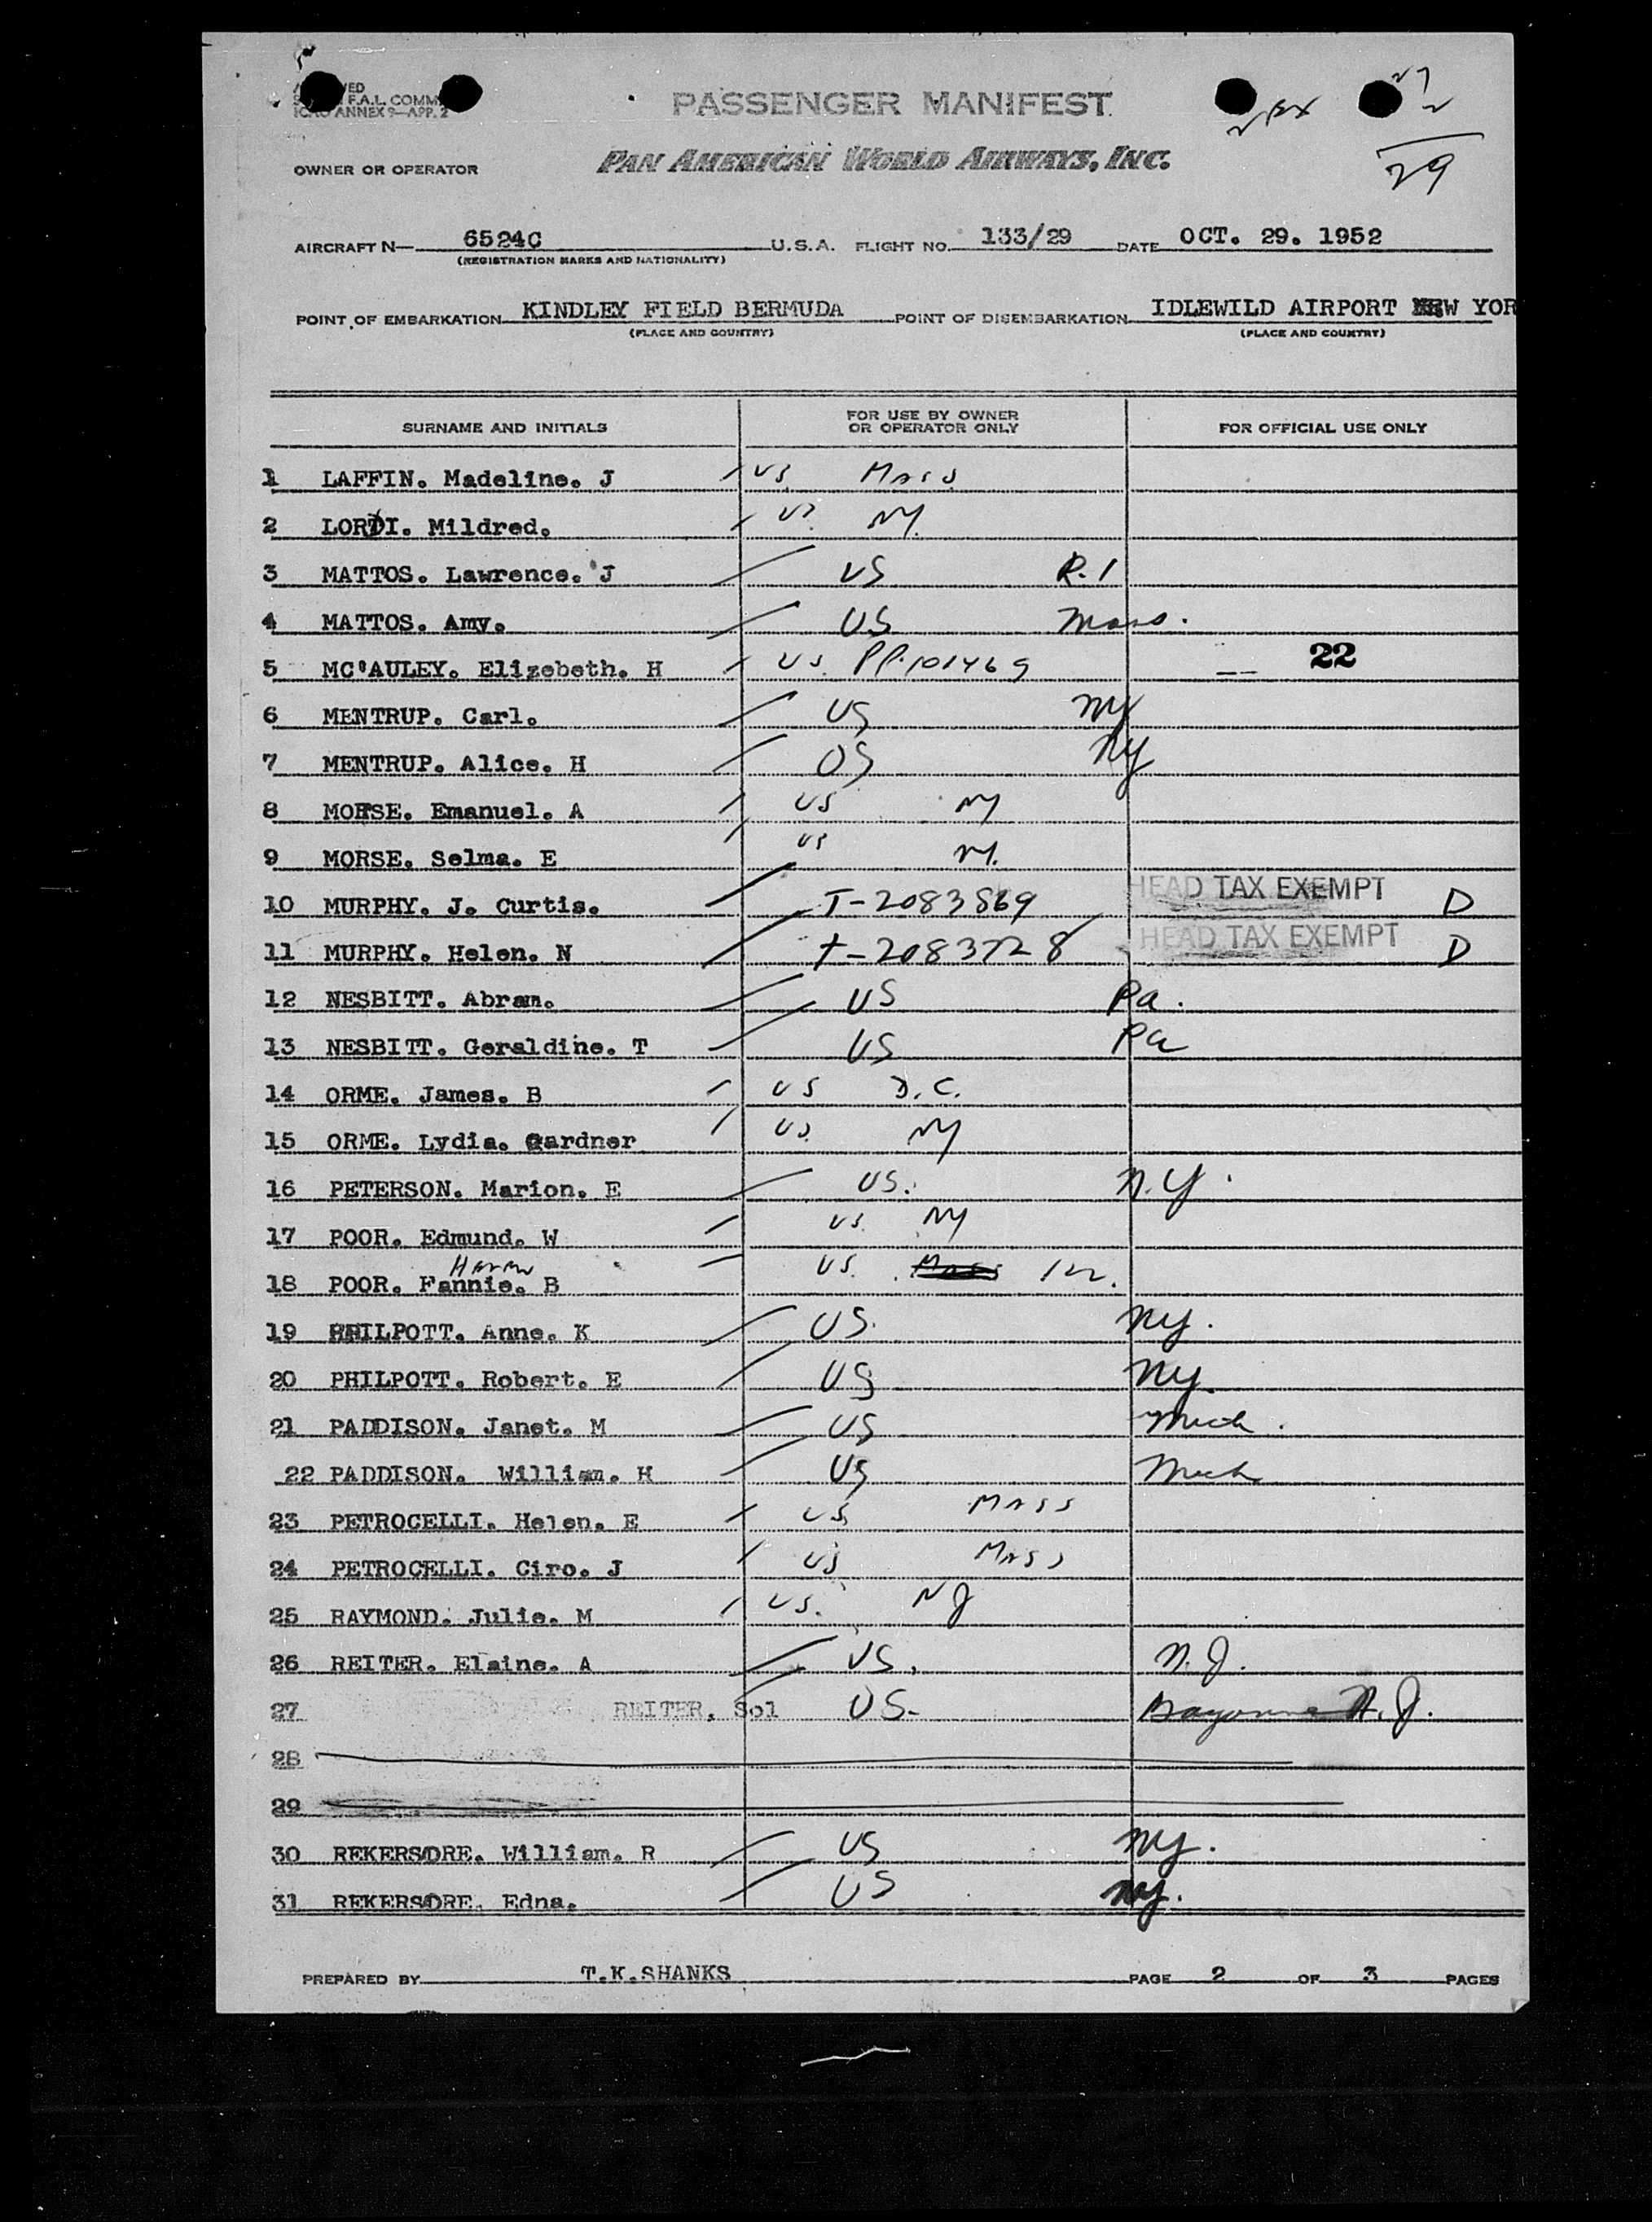 F.A.L. COMM
ICAO ANNEX 9—APP. 2
PASSENGER MANIFEST
27
2
29
OWNER OR OPERATOR PAN AMERICAN WORLD AIRWAYS, INC.
AIRCRAFT N— 6524C U.S.A. FLIGHT NO. 133/29 DATE OCT. 29. 1952
(REGISTRATION MARKS AND NATIONALITY)
POINT OF EMBARKATION KINDLEY FIELD BERMUDA POINT OF DISEMBARKATION IDLEWILD AIRPORT NEW YOR
(PLACE AND COUNTRY) (PLACE AND COUNTRY)
SURNAME AND INITIALS FOR USE BY OWNER OR OPERATOR ONLY FOR OFFICIAL USE ONLY
1 LAFFIN. Madeline. J US Mass
2 LORDI. Mildred. US. NY.
3 MATTOS. Lawrence. J US R.I
4 MATTOS. Amy. US Mass.
5 MC'AULEY. Elizebeth. H US. PP.101469 22
6 MENTRUP. Carl. US NY
7 MENTRUP. Alice. H US NY
8 MORSE. Emanuel. A US NY
9 MORSE. Selma. E US NY.
10 MURPHY. J. Curtis. T-2083869 HEAD TAX EXEMPT D
11 MURPHY. Helen. N T-2083728 HEAD TAX EXEMPT D
12 NESBITT. Abram. US Pa.
13 NESBITT. Geraldine. T US Pa
14 ORME. James. B US D.C.
15 ORME. Lydia. Gardner US. NY
16 PETERSON. Marion. E US. N.Y.
17 POOR. Edmund. W US. NY
18 POOR. Fannie. B US. Mass
19 PHILPOTT. Anne. K US. NY.
20 PHILPOTT. Robert. E US NY.
21 PADDISON. Janet. M US Mich.
22 PADDISON. William. H US Mich
23 PETROCELLI. Helen. E US Mass
24 PETROCELLI. Ciro. J US Mass
25 RAYMOND. Julie. M US. NJ
26 REITER. Elaine. A US. N.J.
27 REITER, Sol US- Bayonne N.J.
28
29
30 REKERSDRE. William. R US NY.
31 REKERSDRE. Edna. US NY.
PREPARED BY T.K.SHANKS PAGE 2 OF 3 PAGES